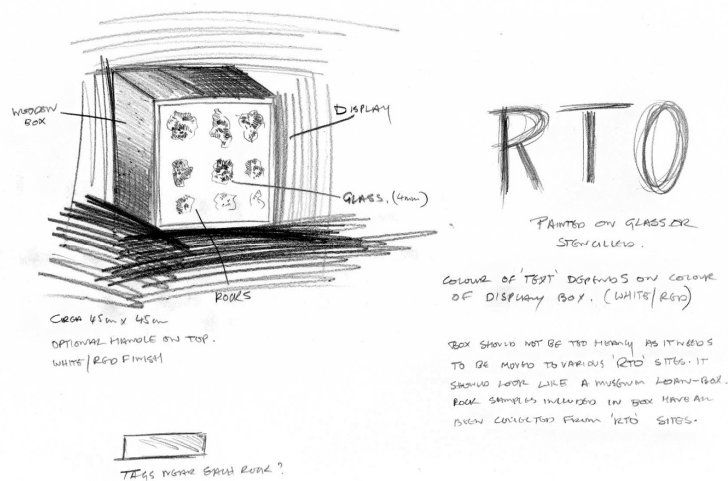 WOODEN
BOX
DISPLAY
GLASS. (4mm)
ROCKS
CIRCA 45cm x 45cm
OPTIONAL HANDLE ON TOP.
WHITE/RED FINISH
TAGS NEAR EACH ROCK?
RTO
PAINTED ON GLASS OR
STENCILLED.
COLOUR OF 'TEXT' DEPENDS ON COLOUR
OF DISPLAY BOX. (WHITE/RED)
BOX SHOULD NOT BE TOO HEAVY AS IT NEEDS
TO BE MOVED TO VARIOUS 'RTO' SITES. IT
SHOULD LOOK LIKE A MUSEUM LOAN-BOX.
ROCK SAMPLES INCLUDED IN BOX HAVE ALL
BEEN COLLECTED FROM 'RTO' SITES.